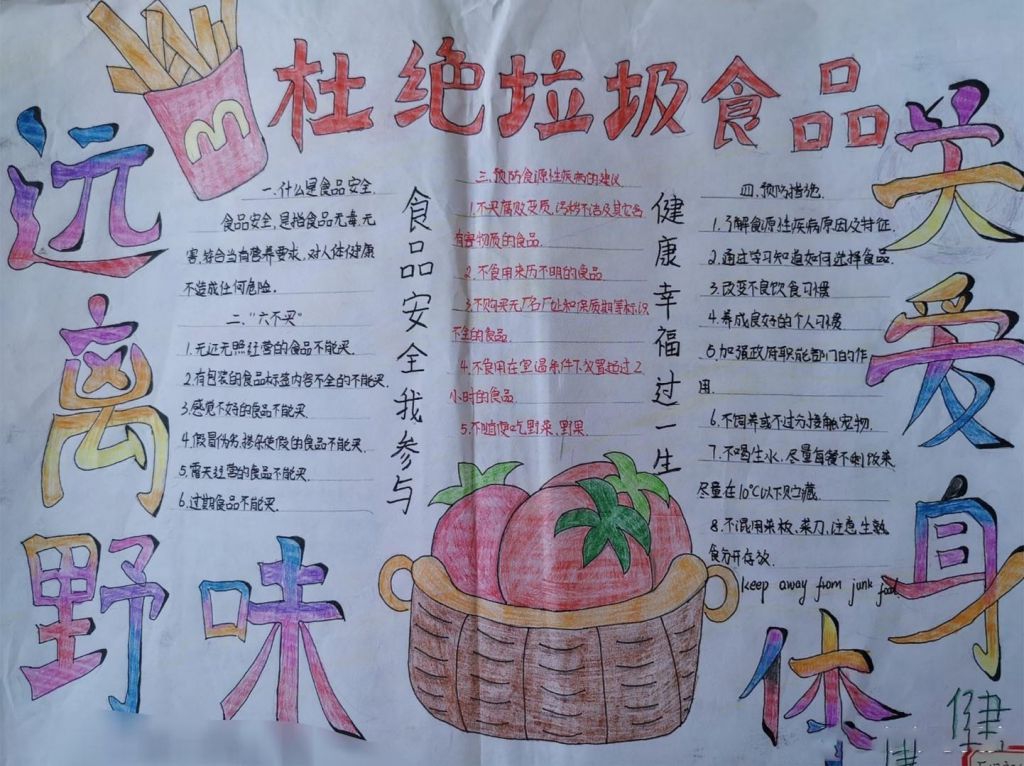 杜绝垃圾食品
远离野味
关爱身体健
一.什么是食品安全
食品安全,是指食品无毒.无
害,符合当有营养要求,对人体健康
不造成任何危险.
二."六不买"
1.无证无照经营的食品不能买.
2.有包装的食品标签内容不全的不能买.
3.感觉不好的食品不能买.
4.假冒伪劣,掺杂使假的食品不能买.
5.露天经营的食品不能买.
6.过期食品不能买.
食品安全我参与
三.预防食源性疾病的建议
1.不买腐败变质.污秽不洁及其它含
有害物质的食品.
2.不食用来历不明的食品
3.不购买无厂名厂址和保质期等标识
不全的食品.
4.不食用在室温条件下放置超过2
小时的食品
5.不随便吃野菜.野果.
健康幸福过一生
四.预防措施.
1.了解食源性疾病原因及特征.
2.通过学习知道如何选择食品.
3.改变不良饮食习惯
4.养成良好的个人习惯
5.加强政府职能部门的作
用.
6.不饲养或不过分接触宠物.
7.不喝生水.尽量每餐不剩饭菜
尽量在10℃以下贮藏
8.不混用菜板.菜刀.注意生熟
食分开存放.
keep away from junk food